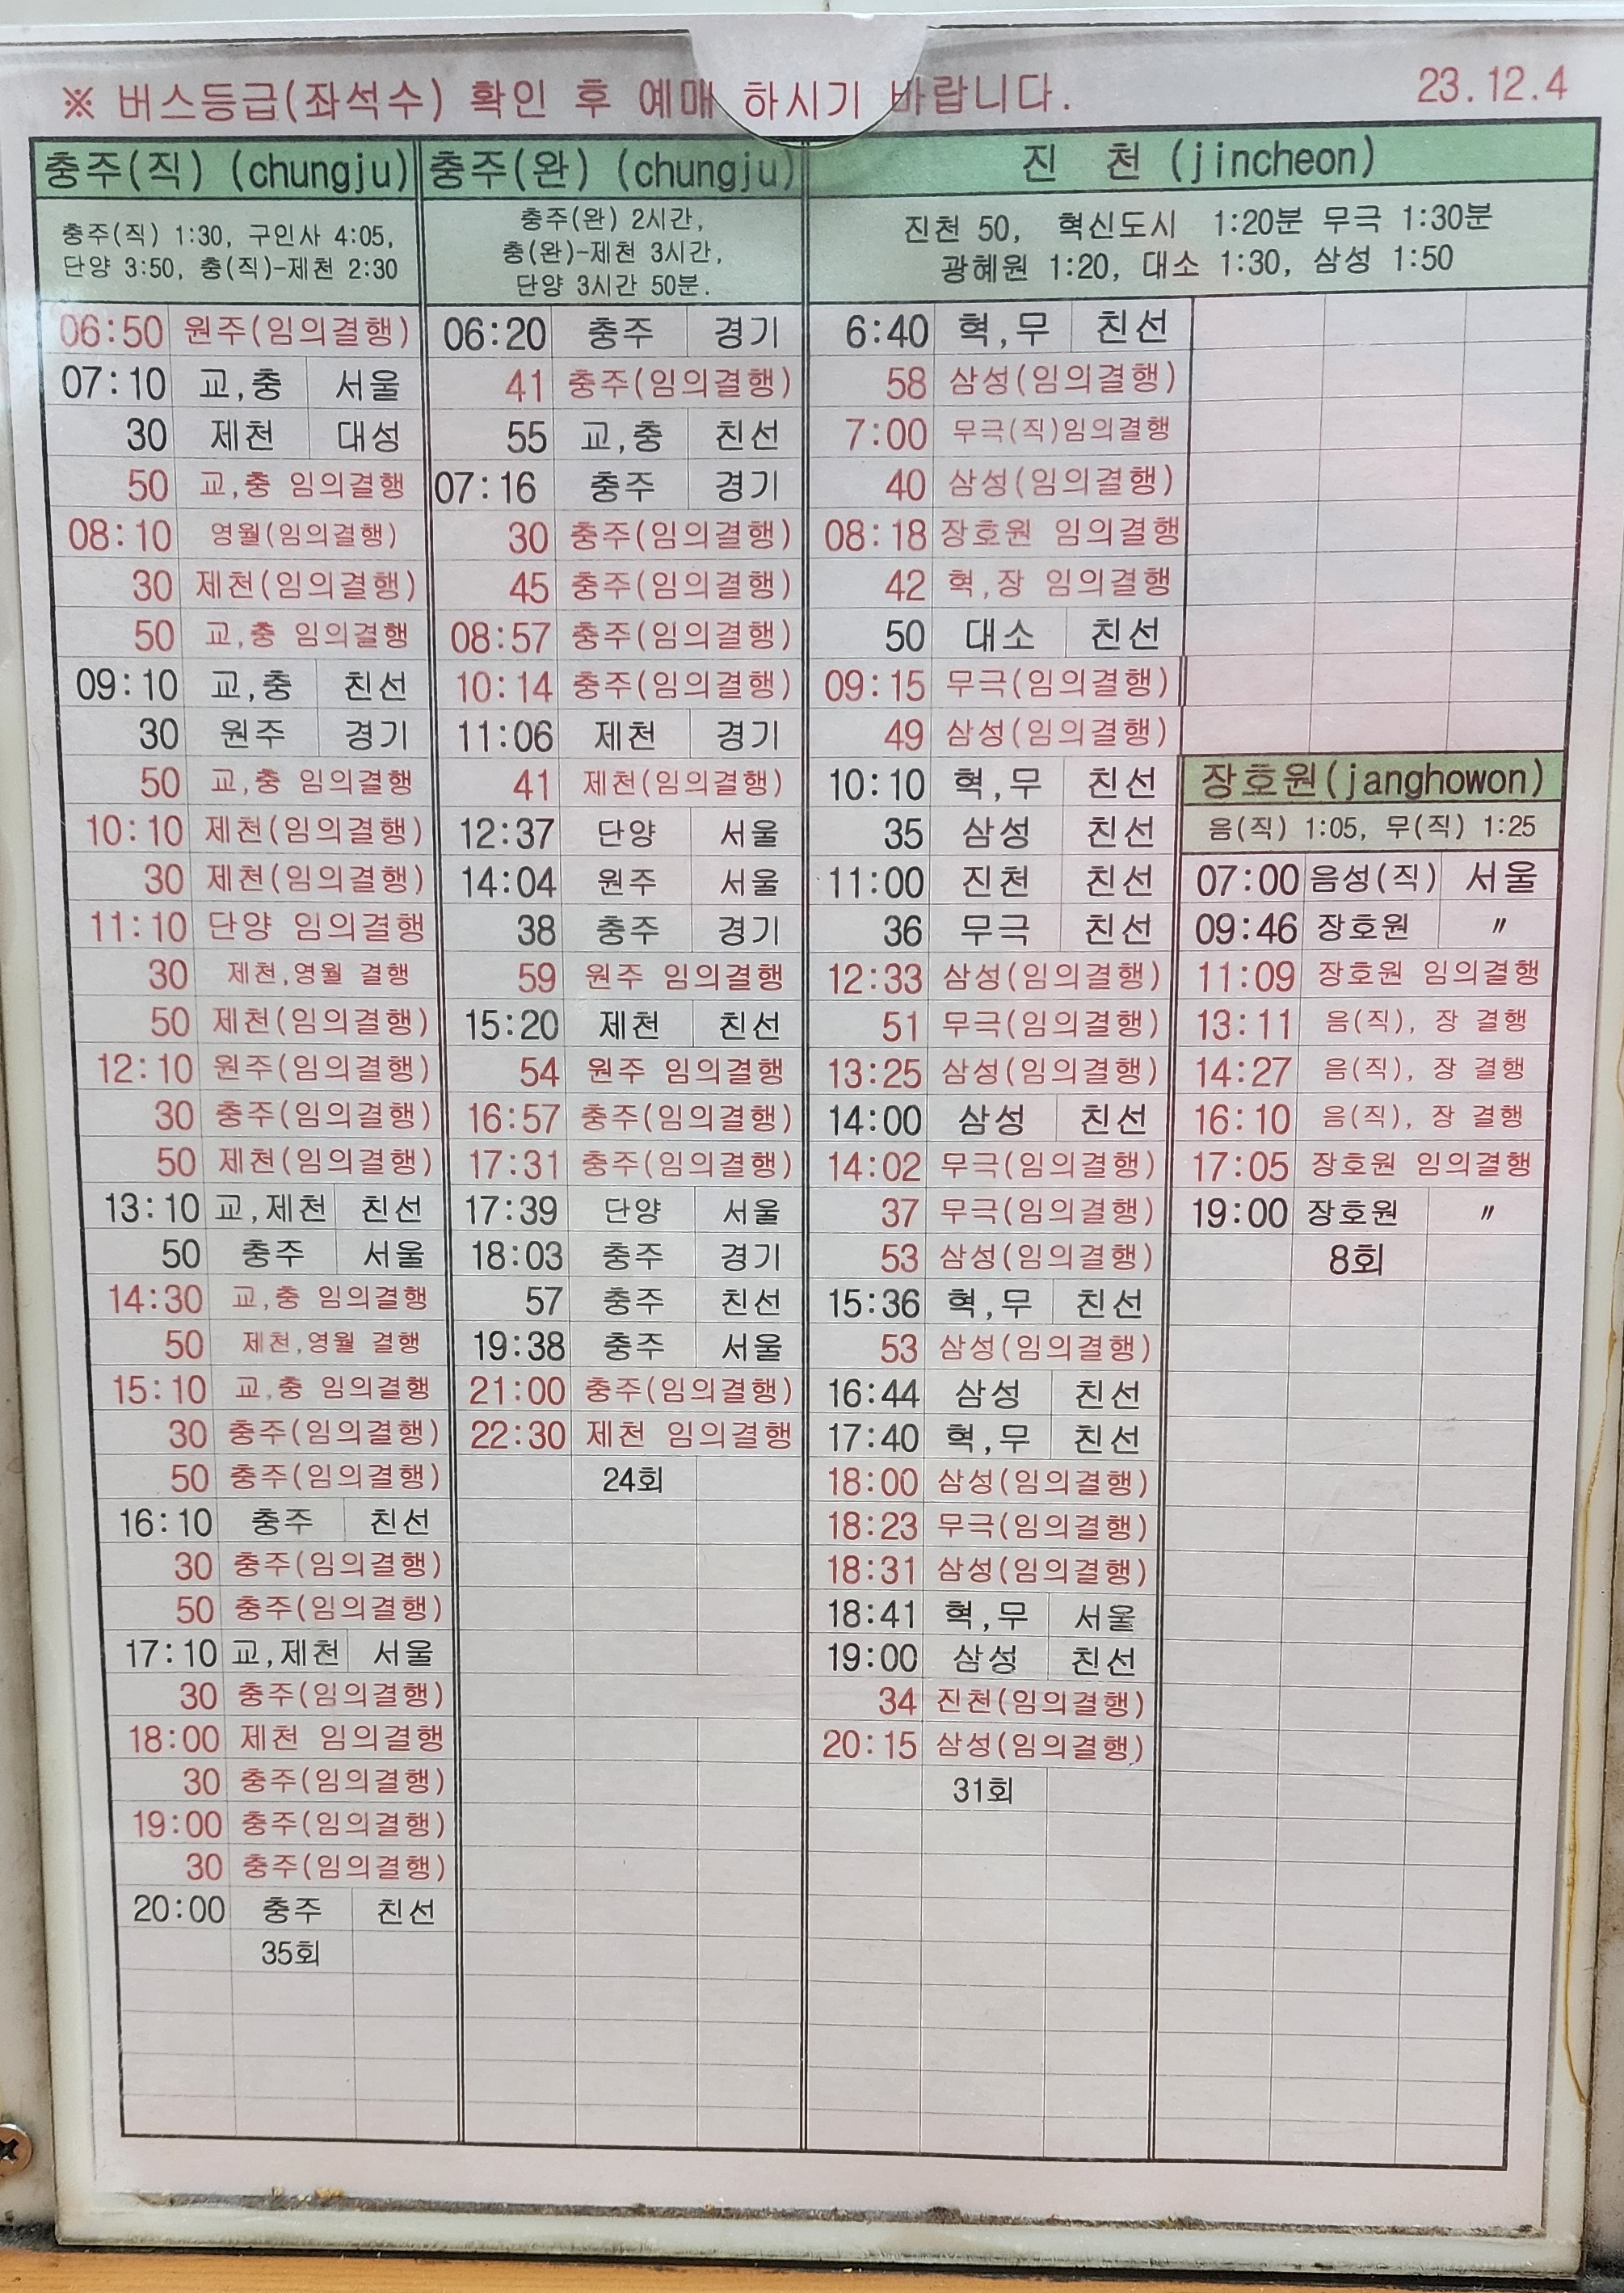 ※ 버스등급(좌석수) 확인 후 예매 하시기 바랍니다.
23.12.4
충주(직) (chungju)
충주(직) 1:30, 구인사 4:05,
단양 3:50, 충(직)-제천 2:30
06:50 원주(임의결행)
07:10 교,충 서울
30 제천 대성
50 교,충 임의결행
08:10 영월(임의결행)
30 제천(임의결행)
50 교,충 임의결행
09:10 교,충 친선
30 원주 경기
50 교,충 임의결행
10:10 제천(임의결행)
30 제천(임의결행)
11:10 단양 임의결행
30 제천,영월 결행
50 제천(임의결행)
12:10 원주(임의결행)
30 충주(임의결행)
50 제천(임의결행)
13:10 교,제천 친선
50 충주 서울
14:30 교,충 임의결행
50 제천,영월 결행
15:10 교,충 임의결행
30 충주(임의결행)
50 충주(임의결행)
16:10 충주 친선
30 충주(임의결행)
50 충주(임의결행)
17:10 교,제천 서울
30 충주(임의결행)
18:00 제천 임의결행
30 충주(임의결행)
19:00 충주(임의결행)
30 충주(임의결행)
20:00 충주 친선
35회
충주(완) (chungju)
충주(완) 2시간,
충(완)-제천 3시간,
단양 3시간 50분.
06:20 충주 경기
41 충주(임의결행)
55 교,충 친선
07:16 충주 경기
30 충주(임의결행)
45 충주(임의결행)
08:57 충주(임의결행)
10:14 충주(임의결행)
11:06 제천 경기
41 제천(임의결행)
12:37 단양 서울
14:04 원주 서울
38 충주 경기
59 원주 임의결행
15:20 제천 친선
54 원주 임의결행
16:57 충주(임의결행)
17:31 충주(임의결행)
17:39 단양 서울
18:03 충주 경기
57 충주 친선
19:38 충주 서울
21:00 충주(임의결행)
22:30 제천 임의결행
24회
진 천 (jincheon)
진천 50, 혁신도시 1:20분 무극 1:30분
광혜원 1:20, 대소 1:30, 삼성 1:50
6:40 혁,무 친선
58 삼성(임의결행)
7:00 무극(직)임의결행
40 삼성(임의결행)
08:18 장호원 임의결행
42 혁,장 임의결행
50 대소 친선
09:15 무극(임의결행)
49 삼성(임의결행)
10:10 혁,무 친선
35 삼성 친선
11:00 진천 친선
36 무극 친선
12:33 삼성(임의결행)
51 무극(임의결행)
13:25 삼성(임의결행)
14:00 삼성 친선
14:02 무극(임의결행)
37 무극(임의결행)
53 삼성(임의결행)
15:36 혁,무 친선
53 삼성(임의결행)
16:44 삼성 친선
17:40 혁,무 친선
18:00 삼성(임의결행)
18:23 무극(임의결행)
18:31 삼성(임의결행)
18:41 혁,무 서울
19:00 삼성 친선
34 진천(임의결행)
20:15 삼성(임의결행)
31회
장호원(janghowon)
음(직) 1:05, 무(직) 1:25
07:00 음성(직) 서울
09:46 장호원 〃
11:09 장호원 임의결행
13:11 음(직), 장 결행
14:27 음(직), 장 결행
16:10 음(직), 장 결행
17:05 장호원 임의결행
19:00 장호원 〃
8회